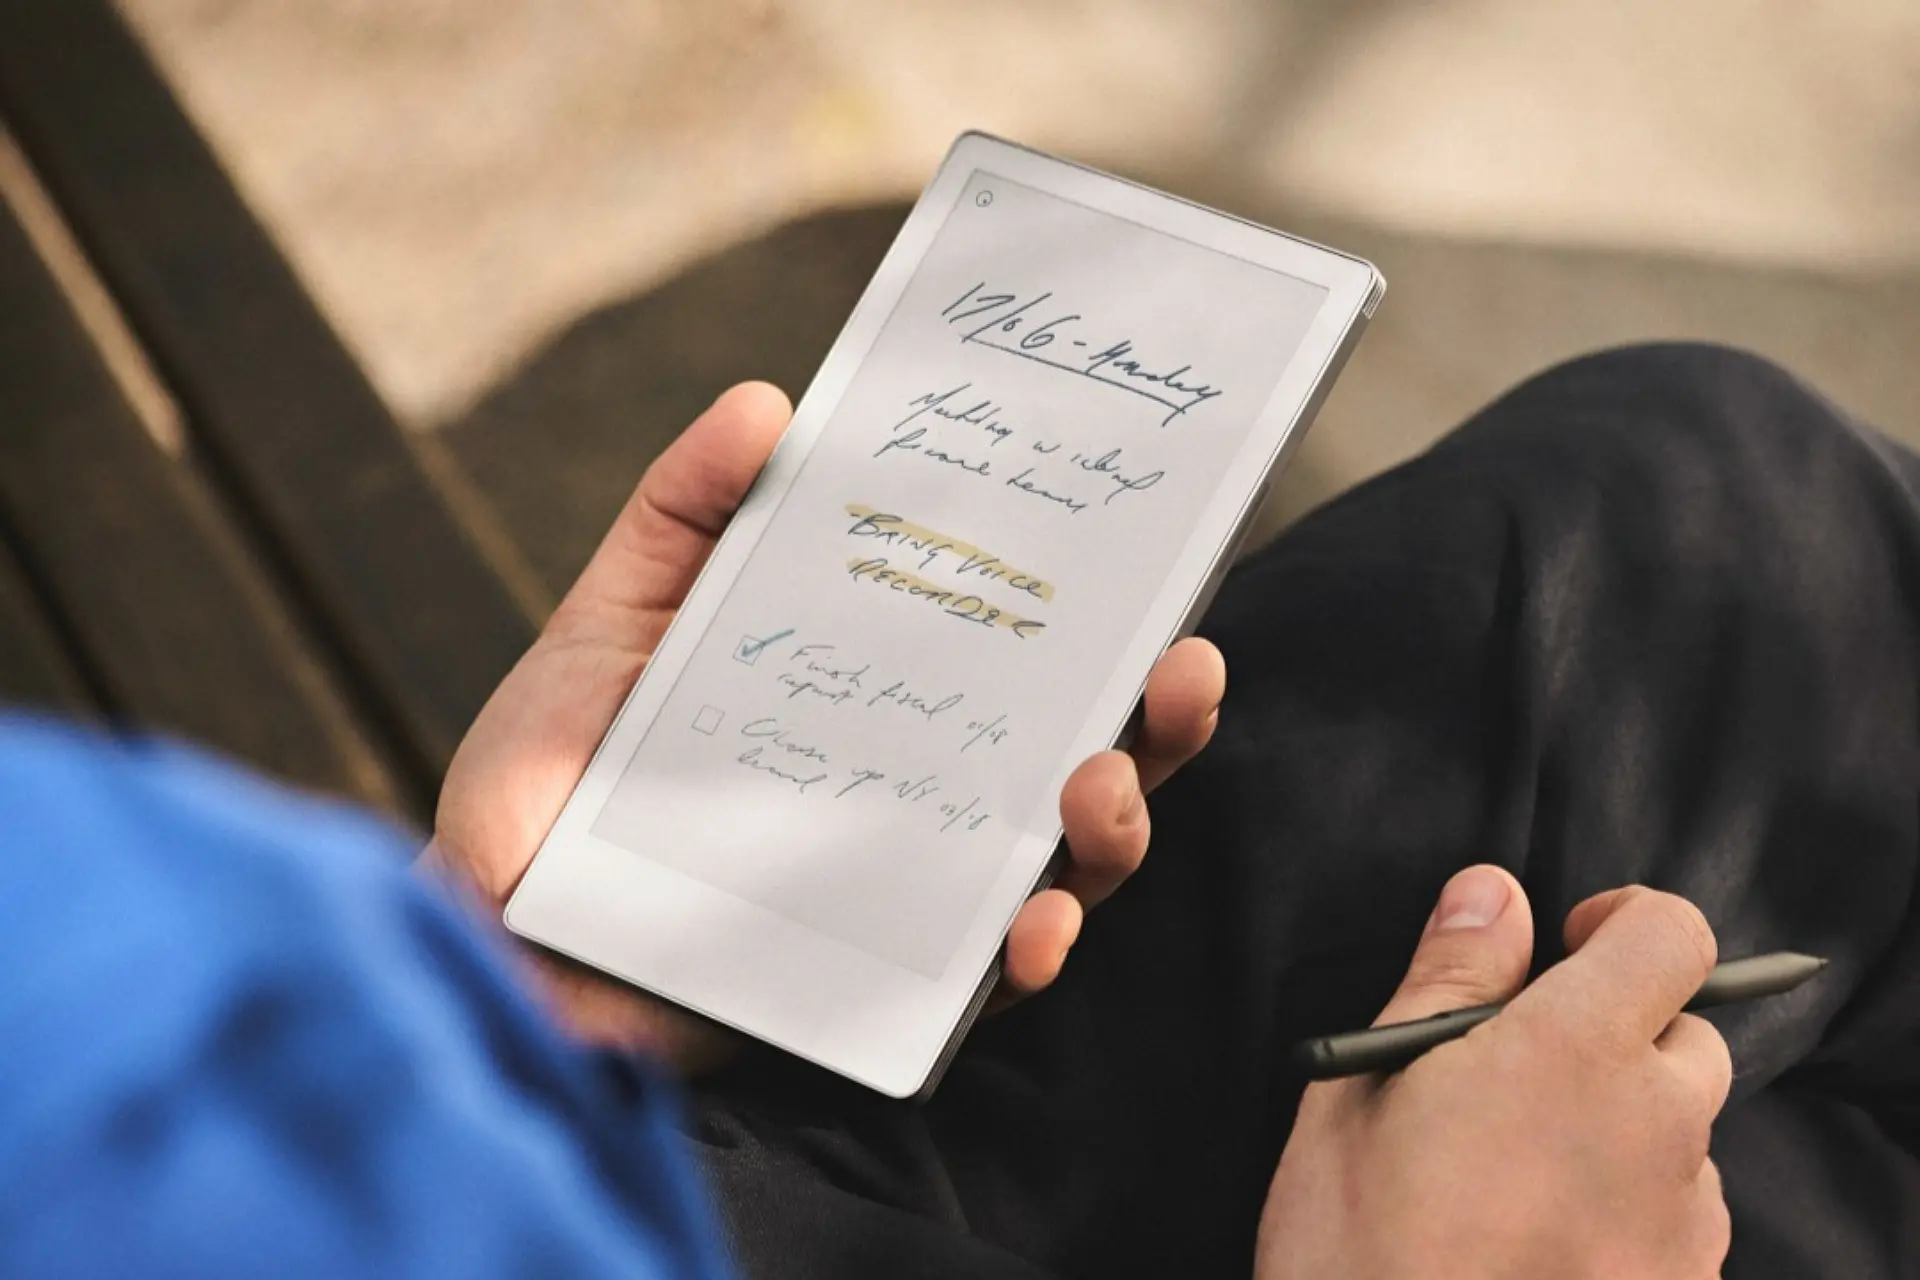 17/06 - Monday
Meeting w
finance team
- BRING VOICE
RECORDER
Finish fiscal 01/08
report
Close up NY 03/18